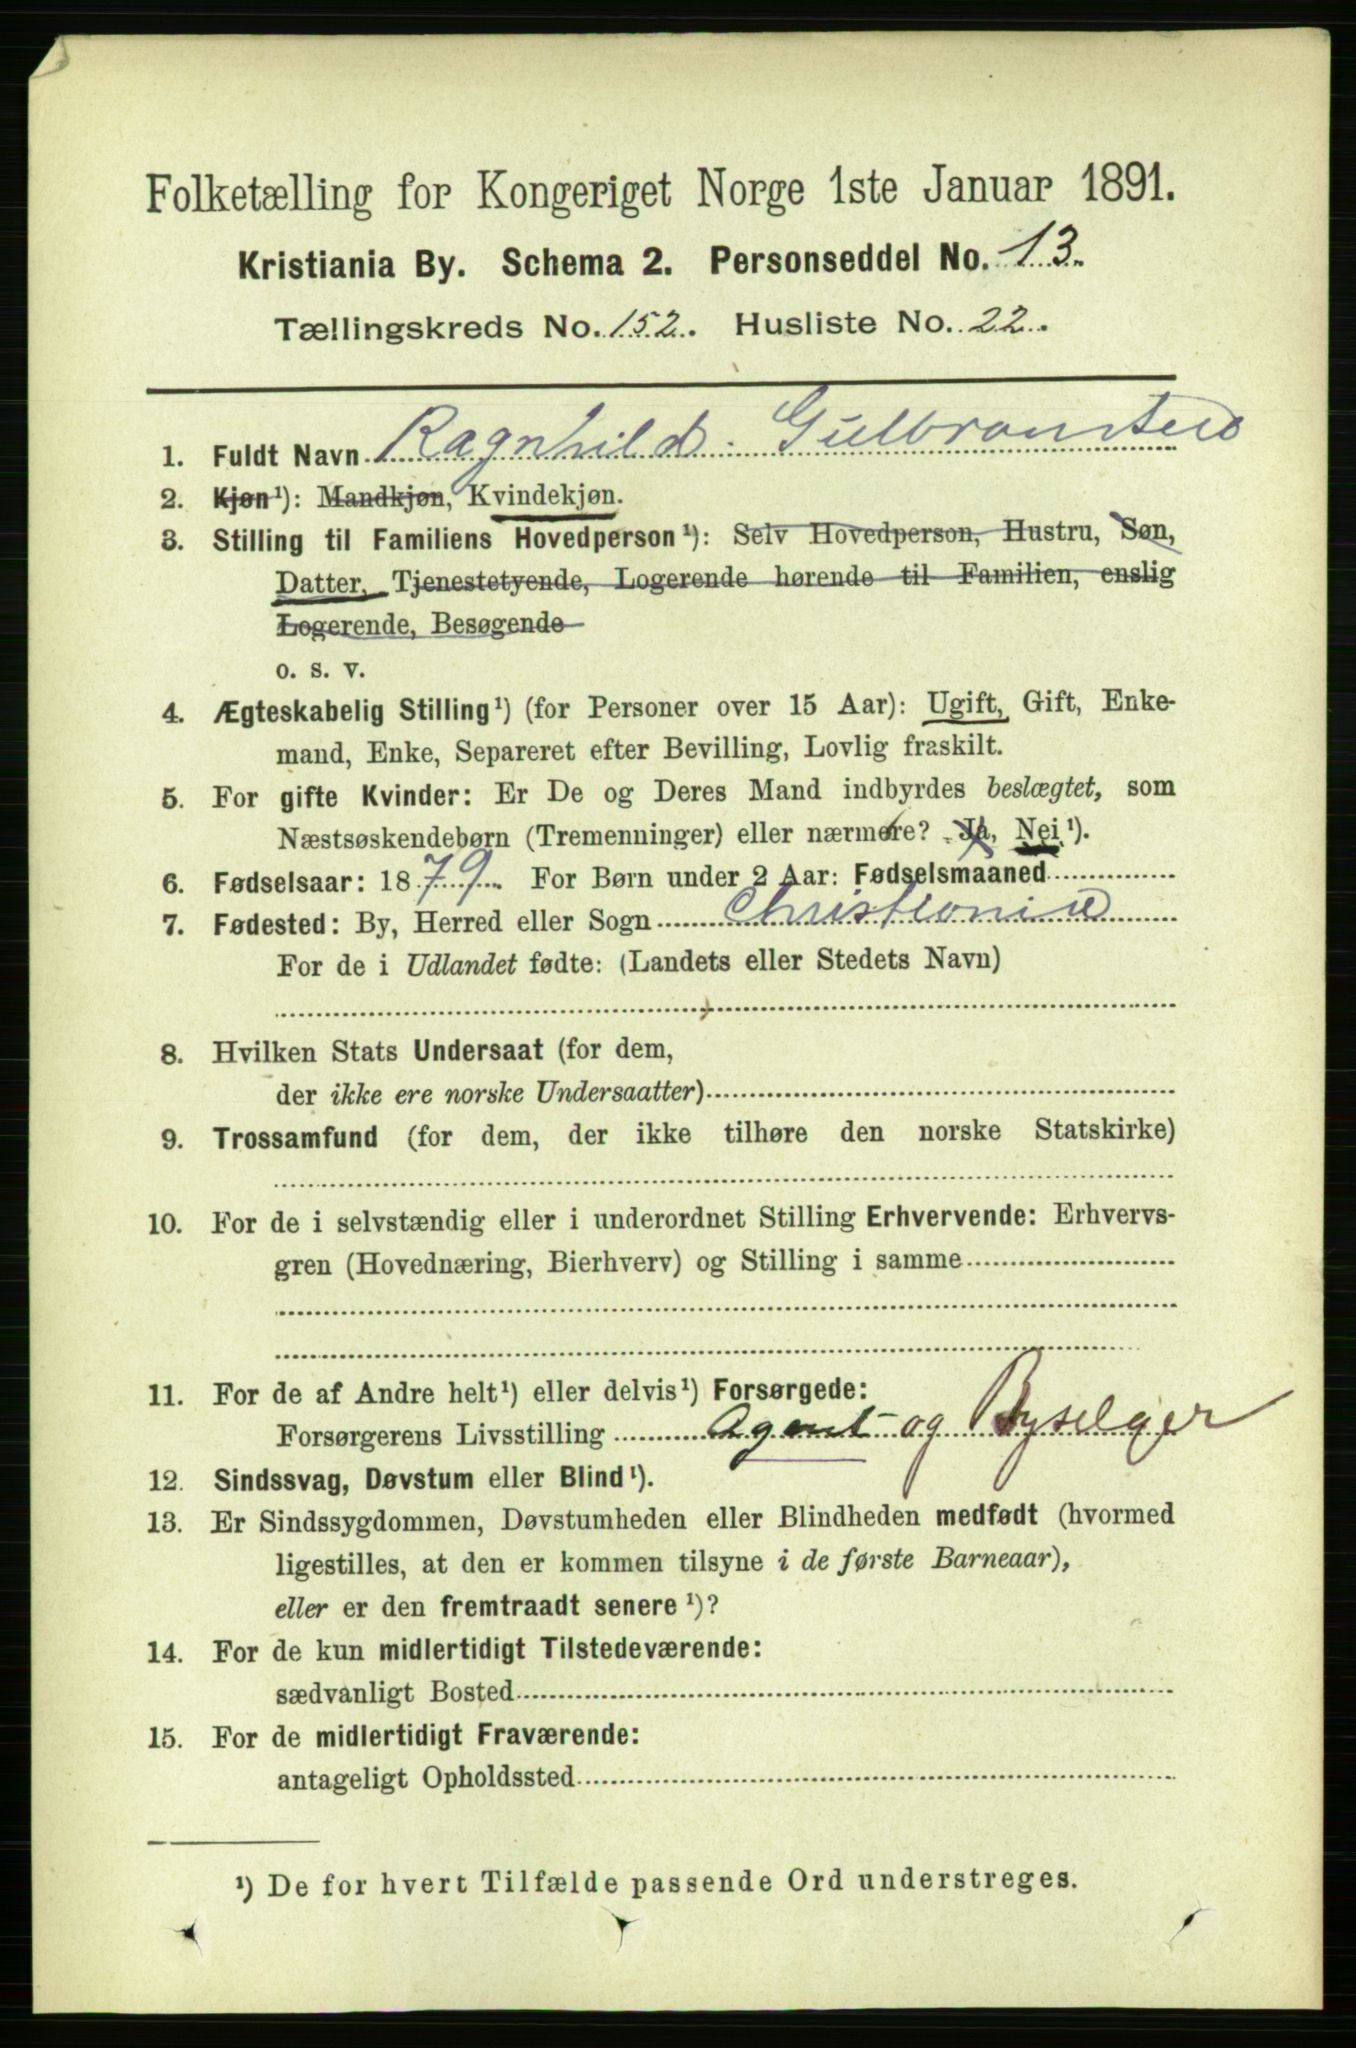 Folketælling for Kongeriget Norge 1ste Januar 1891.
Kristiania By. Schema 2. Personseddel No. 13.
Tællingskreds No. 152. Husliste No. 22.
1. Fuldt Navn Ragnhild Gulbransen
2. Kjøn¹): Mandkjøn, Kvindekjøn.
3. Stilling til Familiens Hovedperson¹): Selv Hovedperson, Hustru, Søn,
Datter, Tjenestetyende, Logerende hørende til Familien, enslig
Logerende, Besøgende
o. s. v.
4. Ægteskabelig Stilling¹) (for Personer over 15 Aar): Ugift, Gift, Enke-
mand, Enke, Separeret efter Bevilling, Lovlig fraskilt.
5. For gifte Kvinder: Er De og Deres Mand indbyrdes beslægtet, som
Næstsøskendebørn (Tremenninger) eller nærmere? Ja, Nei¹).
6. Fødselsaar: 1879. For Børn under 2 Aar: Fødselsmaaned
7. Fødested: By, Herred eller Sogn Christiania
For de i Udlandet fødte: (Landets eller Stedets Navn)
8. Hvilken Stats Undersaat (for dem,
der ikke ere norske Undersaatter)
9. Trossamfund (for dem, der ikke tilhøre den norske Statskirke)
10. For de i selvstændig eller i underordnet Stilling Erhvervende: Erhvervs-
gren (Hovednæring, Bierhverv) og Stilling i samme
11. For de af Andre helt¹) eller delvis¹) Forsørgede:
Forsørgerens Livsstilling Agent og Byselger
12. Sindssvag, Døvstum eller Blind¹).
13. Er Sindssygdommen, Døvstumheden eller Blindheden medfødt (hvormed
ligestilles, at den er kommen tilsyne i de første Barneaar),
eller er den fremtraadt senere¹)?
14. For de kun midlertidigt Tilstedeværende:
sædvanligt Bosted
15. For de midlertidigt Fraværende:
antageligt Opholdssted
¹) De for hvert Tilfælde passende Ord understreges.